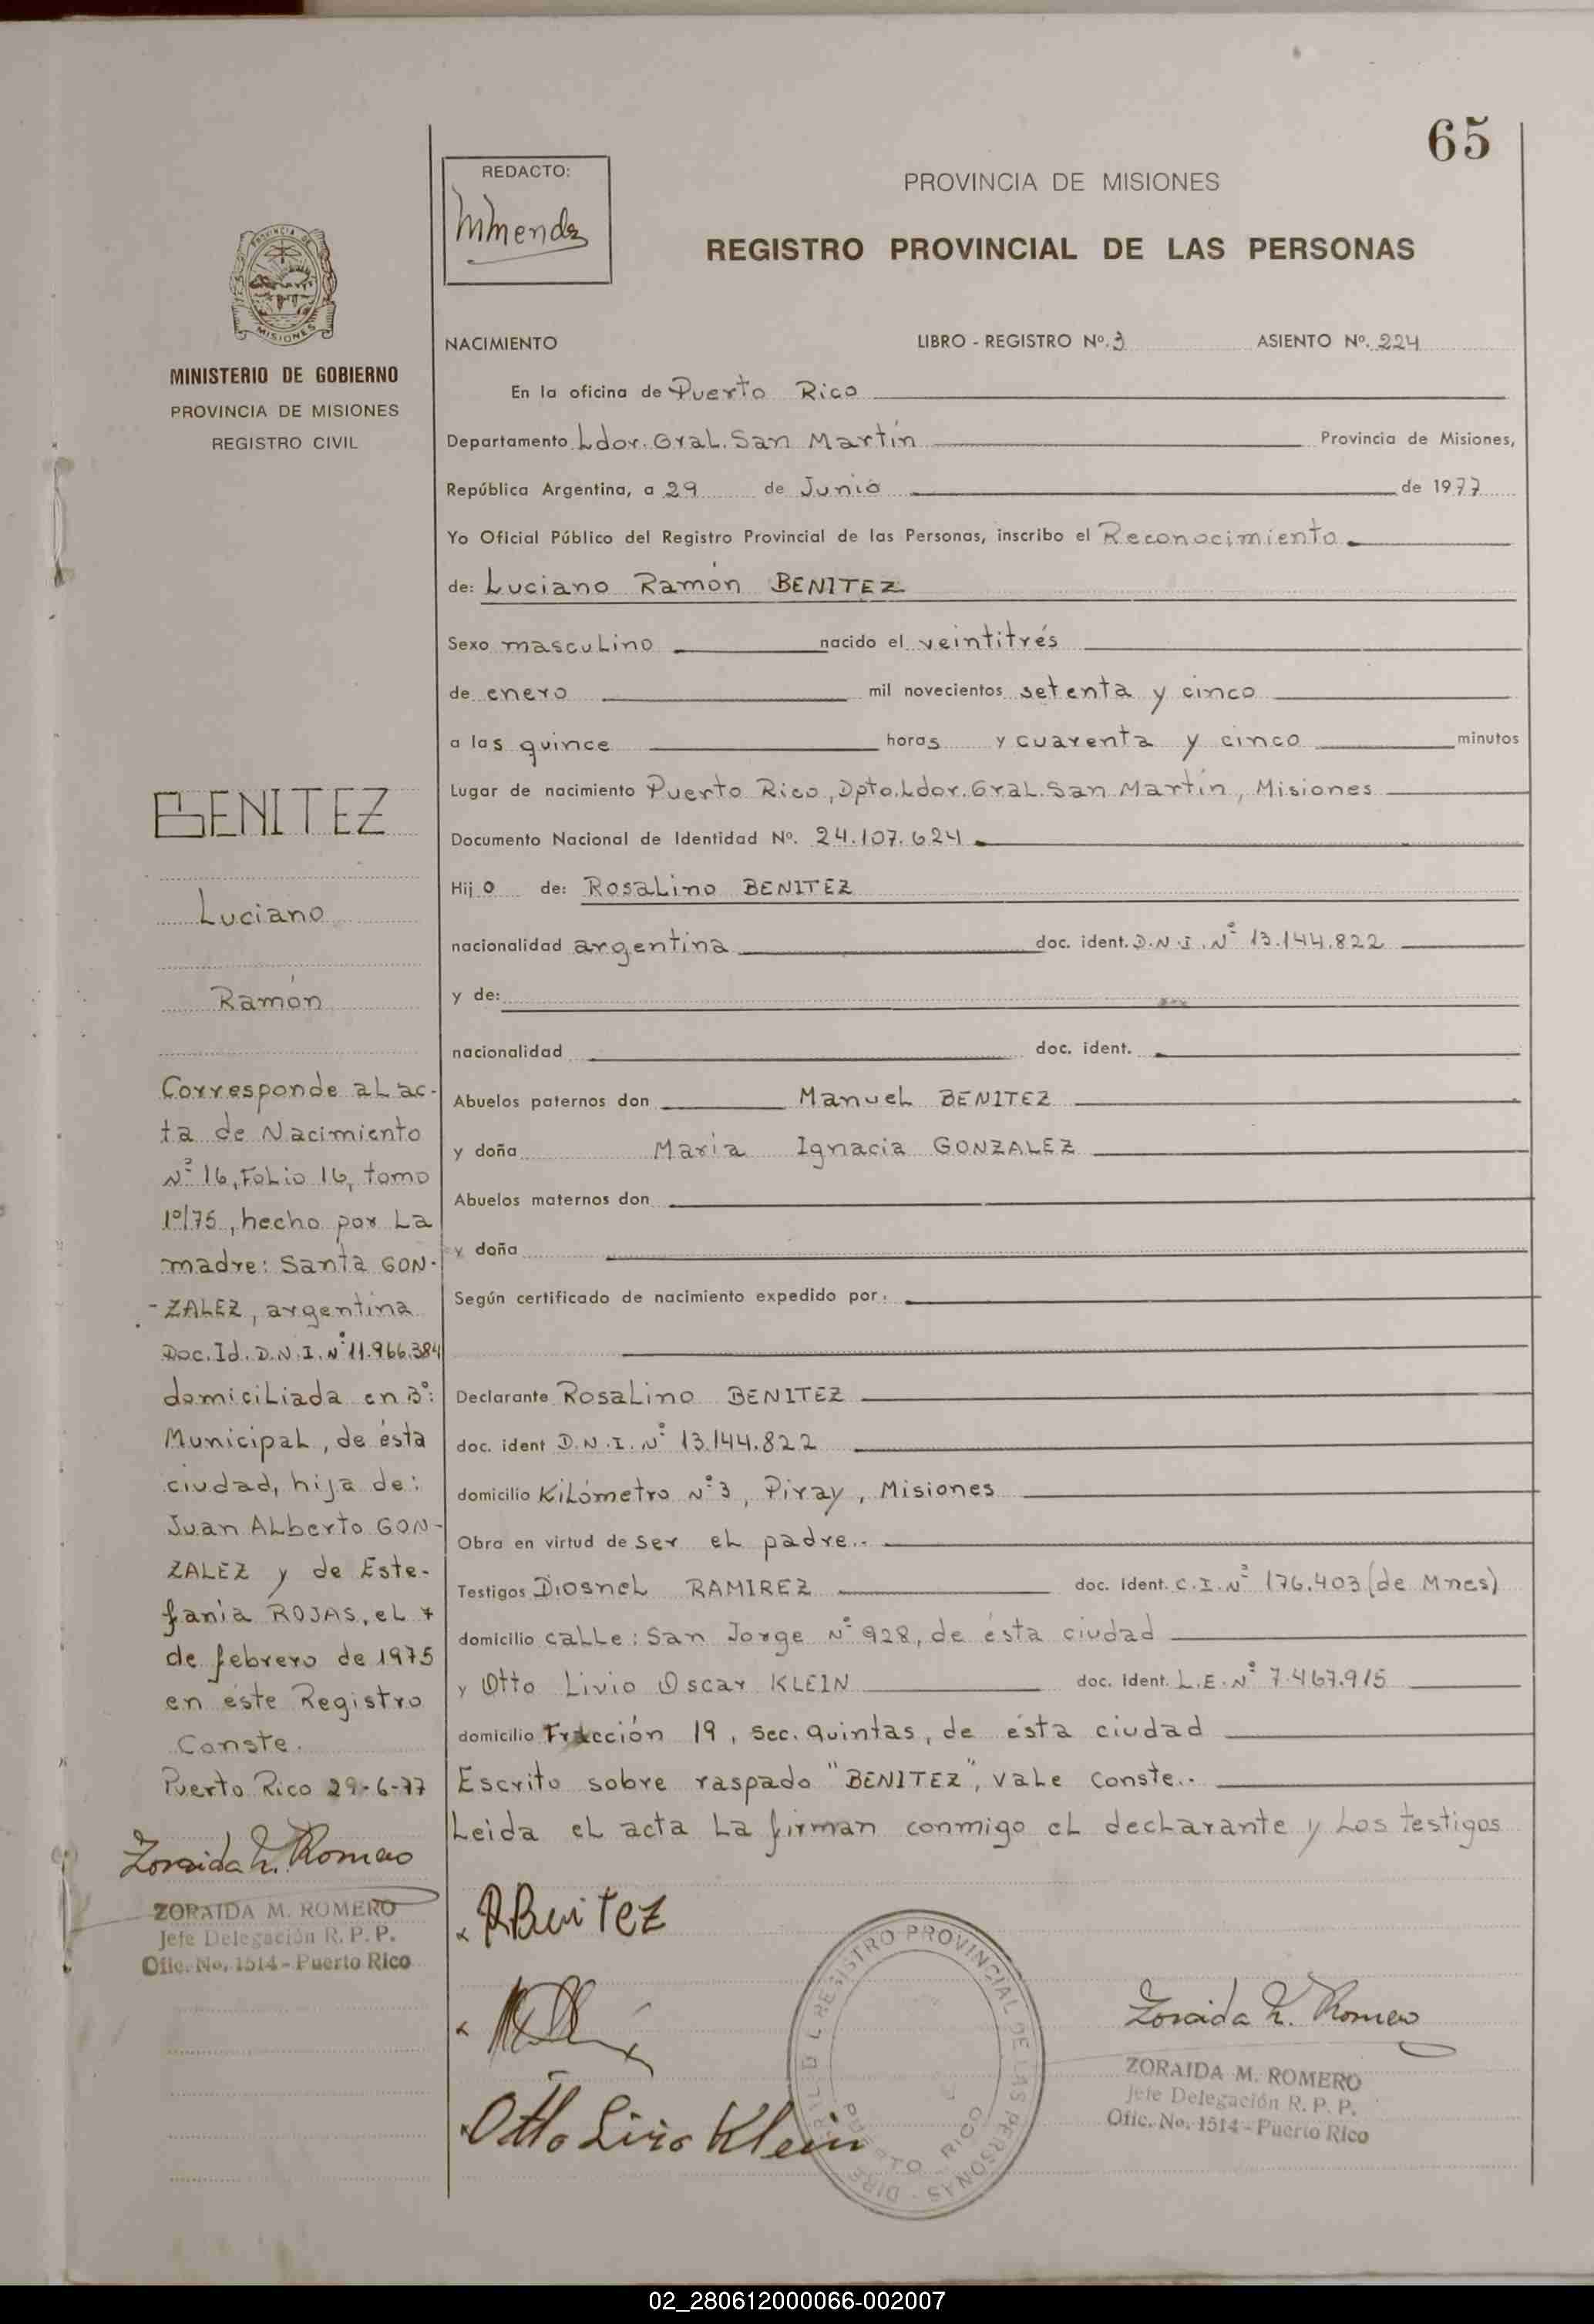 65
REDACTO:
MMendez
PROVINCIA DE MISIONES
REGISTRO PROVINCIAL DE LAS PERSONAS
PROVINCIA DE
MISIONES
MINISTERIO DE GOBIERNO
PROVINCIA DE MISIONES
REGISTRO CIVIL
BENITEZ
Luciano
Ramón
Corresponde al ac-
ta de Nacimiento
Nº 16, Folio 16, tomo
1º/75, hecho por La
madre: Santa GON-
-ZALEZ, argentina
Doc. Id. D.N.I. Nº 11.966.384
domiciliada en Bº:
Municipal, de ésta
ciudad, hija de:
Juan Alberto GON-
ZALEZ y de Este-
fania ROJAS, el
de febrero de 1975
en éste Registro
Conste.
Puerto Rico 29-6-77
Zoraida M. Romero
ZORAIDA M. ROMERO
Jefe Delegación R. P. P.
Ofic. No. 1514 - Puerto Rico
NACIMIENTO LIBRO - REGISTRO Nº. 3 ASIENTO Nº. 224
En la oficina de Puerto Rico
Departamento Ldor. Gral. San Martín Provincia de Misiones,
República Argentina, a 29 de Junio de 1977
Yo Oficial Público del Registro Provincial de las Personas, inscribo el Reconocimiento
de: Luciano Ramón BENITEZ
Sexo masculino nacido el veintitrés
de enero mil novecientos setenta y cinco
a las quince horas y cuarenta y cinco minutos
Lugar de nacimiento Puerto Rico, Dpto. Ldor. Gral. San Martín, Misiones
Documento Nacional de Identidad Nº. 24.107.624
Hijo de: Rosalino BENITEZ
nacionalidad argentina doc. ident. D.N.I. Nº 13.144.822
y de:
nacionalidad doc. ident.
Abuelos paternos don Manuel BENITEZ
y doña María Ignacia GONZALEZ
Abuelos maternos don
y doña
Según certificado de nacimiento expedido por:
Declarante Rosalino BENITEZ
doc. ident D.N.I. Nº 13.144.822
domicilio Kilómetro Nº 3, Piray, Misiones
Obra en virtud de ser el padre..
Testigos Diosnel RAMIREZ doc. Ident. C.I. Nº 176.403 (de Mnes)
domicilio calle: San Jorge Nº 928, de ésta ciudad
y Otto Livio Oscar KLEIN doc. Ident. L.E. Nº 7.467.915
domicilio Fracción 19, sec. quintas, de ésta ciudad
Escrito sobre raspado "BENITEZ", vale conste..
Leida el acta La firman conmigo el declarante y Los testigos
RBenitez
Otto Livio Klein
REGISTRO PROVINCIAL DE LAS PERSONAS
PUERTO RICO
Zoraida M. Romero
ZORAIDA M. ROMERO
Jefe Delegación R. P. P.
Ofic. No. 1514 - Puerto Rico
02_280612000066-002007